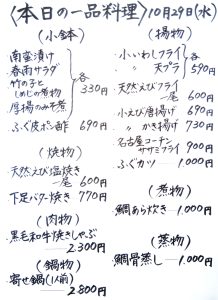 〈本日の一品料理〉10月29日(水)
(小鉢)
南蛮漬け
春雨サラダ
竹の子と
しめじの煮物
厚揚のみそ煮
各330円
ふぐ皮ポン酢 690円
(焼物)
天然えび塩焼き
一尾 600円
下足バター焼き 770円
(肉物)
黒毛和牛焼きしゃぶ
2.300円
(鍋物)
寄せ鍋(1人前)
2.800円
(揚物)
小いわしフライ
〃 天プラ
各590円
天然えびフライ
一尾 600円
小えび唐揚げ 690円
〃 かき揚げ 730円
名古屋コーチン
ササミフライ 900円
ふぐカツ 1.000円
(煮物)
鯛あら炊き 1.000円
(蒸物)
鯛骨蒸し 1.000円